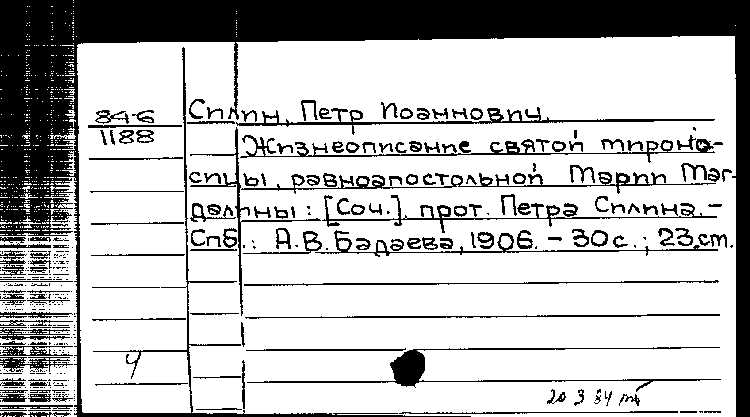 84-6
1188
Силин, Петр Иоаннович.
Жизнеописание святой мироно-
сицы, равноапостольной Марии Маг-
далины: [Соч.]. прот. Петра Силина. -
Спб.: А.В.Бадаева, 1906. - 30 с.; 23 см.
4
20 3 84